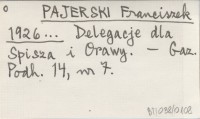 PAJERSKI Franciszek
1926... Delegacje dla
Spisza i Orawy. – Gaz.
Podh. 14, nr 7.